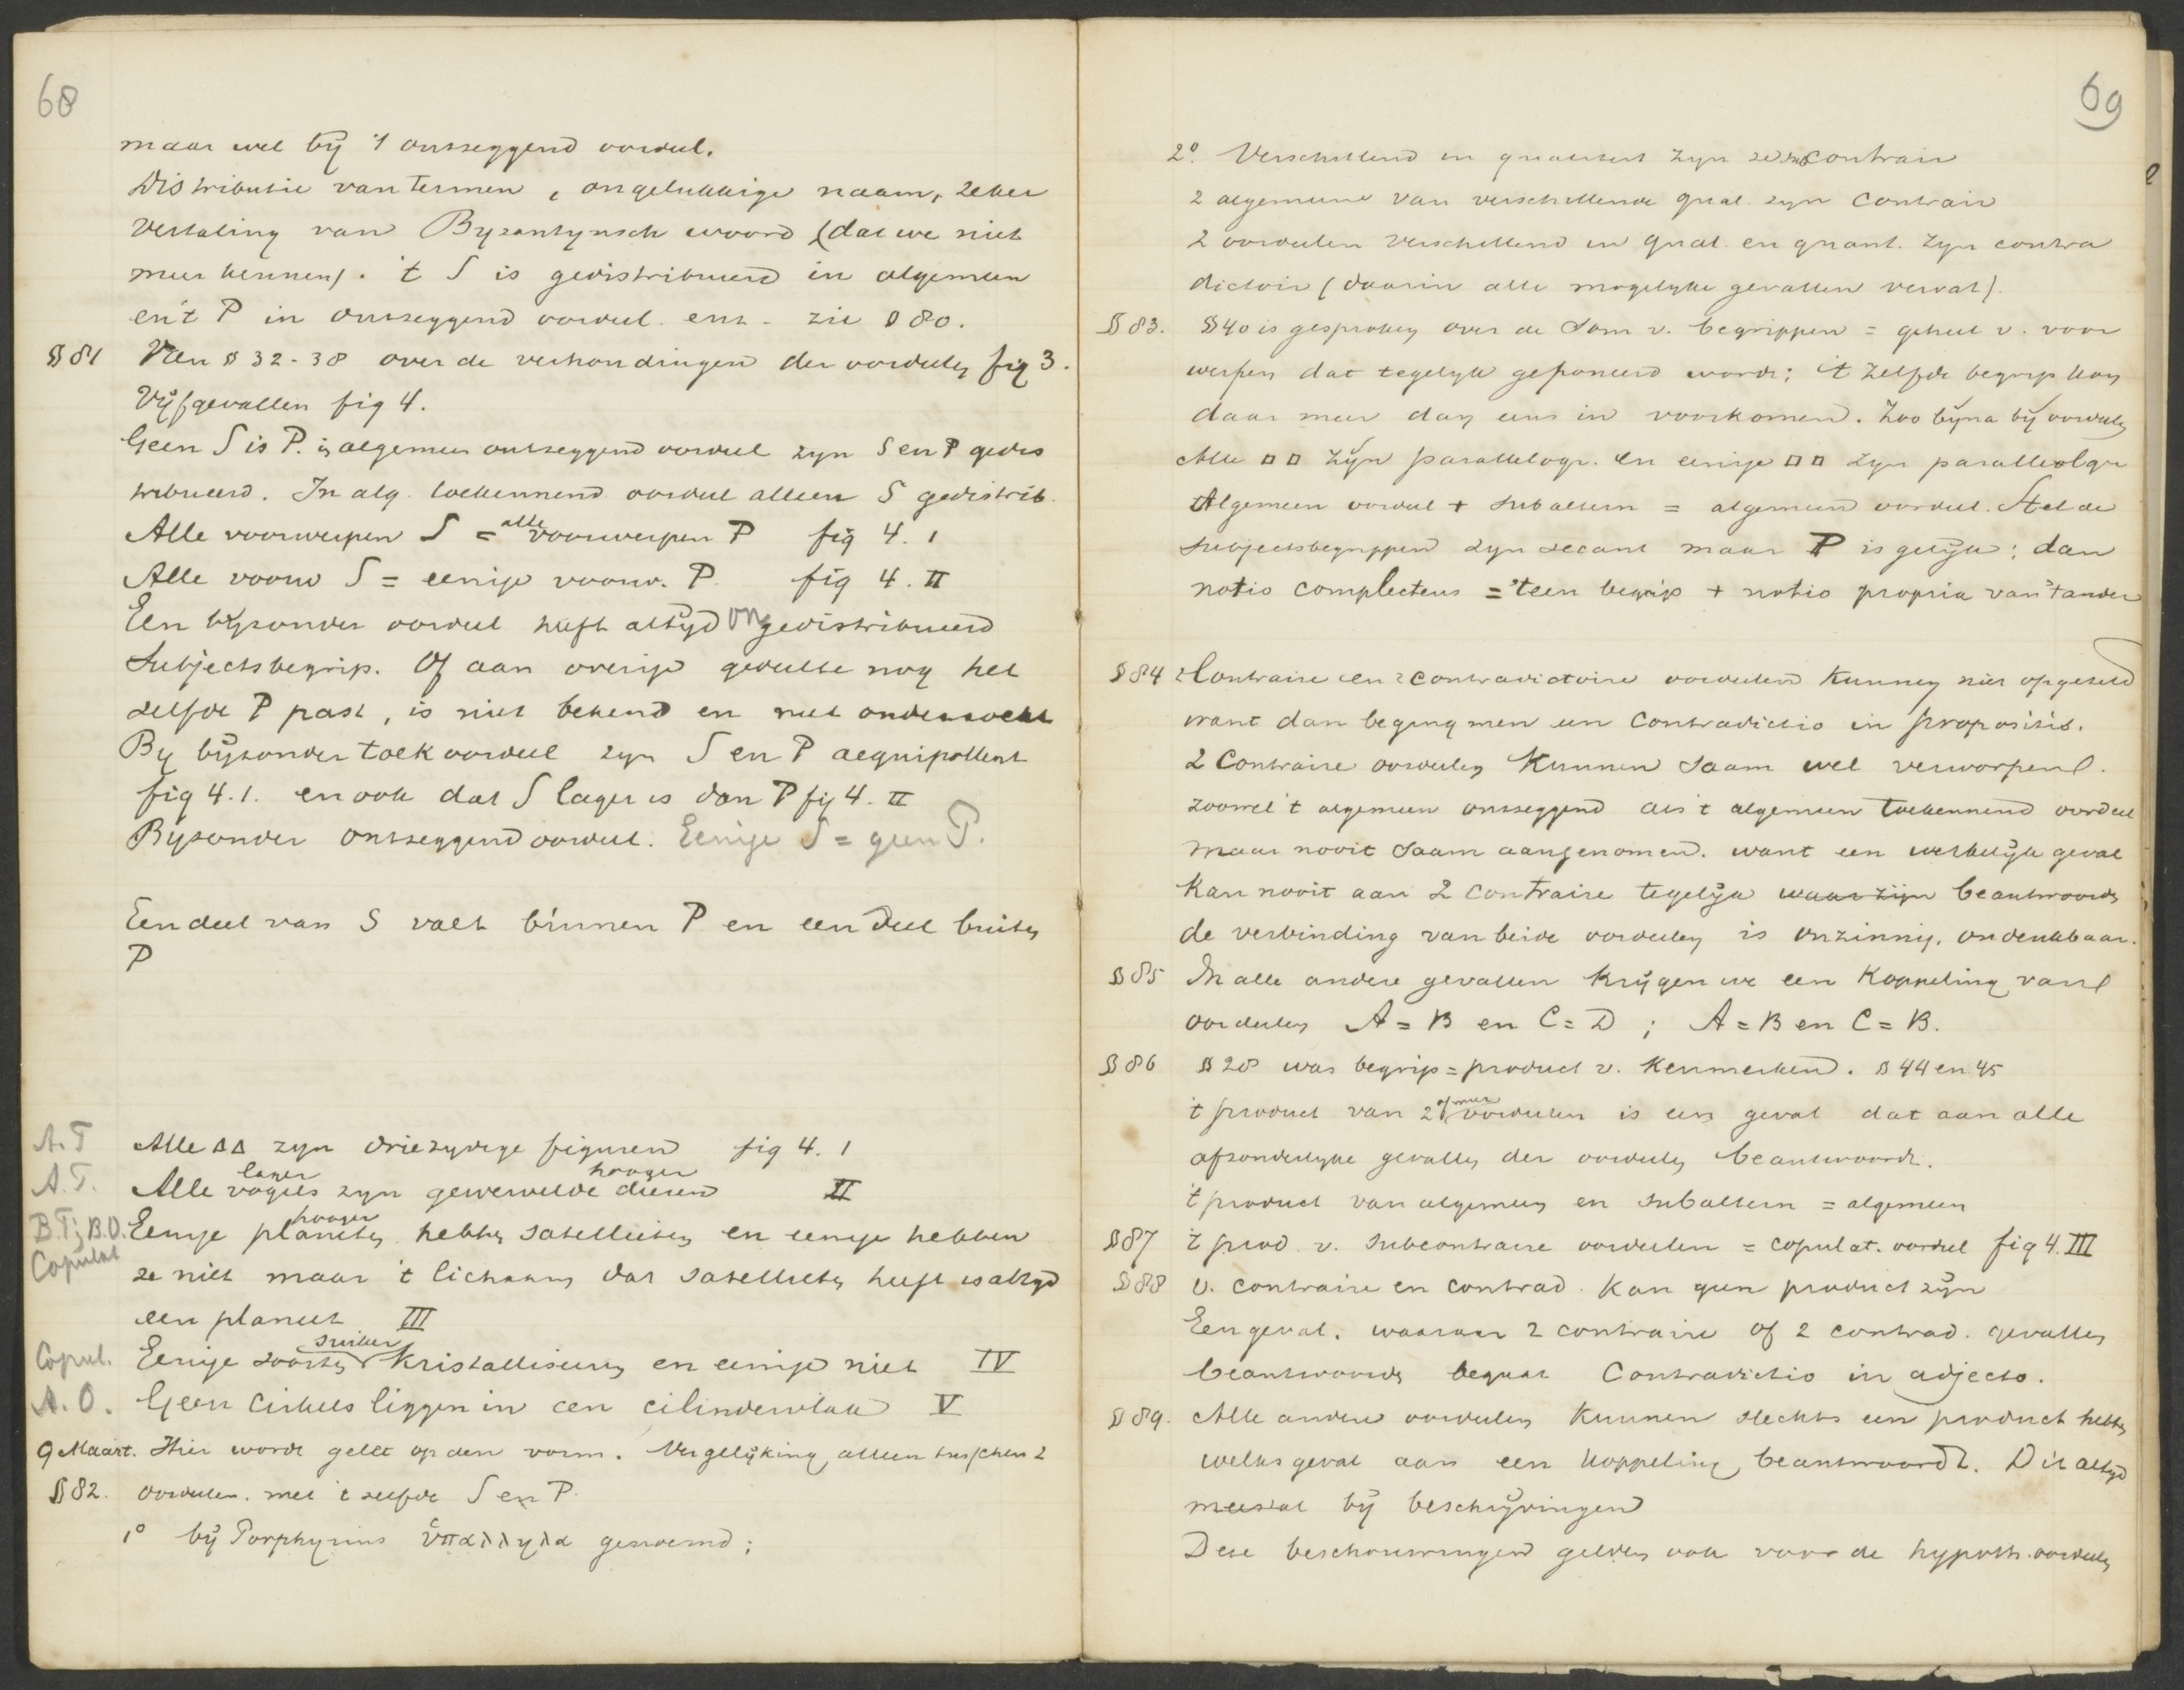 68
maar wel bij 't ontzeggend oordeel.
Distributie van Termen, ongelukkige naam, zeker
vertaling van Byzantynsch woord (dat we niet
meer kennen). 't S is gedistribueerd in algemeen
en 't P in ontzeggend oordeel. enz. zie § 80.
§ 81 Van § 32-38 over de verhoudingen der oordeelen fig 3.
Vijf gevallen fig 4.
Geen S is P. in algemeen ontzeggend oordeel zyn S en P gedis
tribueerd. In alg. toekennend oordeel alleen S gedistrib.
Alle voorwerpen S = alle voorwerpen P fig 4. 1
Alle voorw S = eenige voorw. P. fig 4. II
Een byzonder oordeel heeft altyd ongedistribueerd
Subjectsbegrip. Of aan overige gedeelte nog het
zelfde P past, is niet bekend en niet onderzocht
By bijzonder toek oordeel zyn S en P aequipollent
fig 4.1. en ook dat S lager is dan P fig 4. II
Byzonder ontzeggend oordeel. Eenige S = geen P.
Een deel van S valt binnen P en een deel buiten
P
A.T Alle ΔΔ zyn driezydige figuren fig 4. 1
A.T. Alle vogels lager zyn gewervelde dieren hooger II
B.T; B.O. Eenige planeten hooger hebben satellieten en eenige hebben
Copulat ze niet maar 't lichaam dat satellieten heeft is altyd
een planeet III
Copul. Eenige soorten suiker kristalliseeren en eenige niet IV
A.O. Geen cirkels liggen in een cilindervlak V
9 Maart. Hier wordt gelet op den vorm. Vergelijking alleen tusschen 2
§ 82. oordeelen. met 't zelfde S en P.
1° bij Porphyrius ὑπαλληλα genoemd;
69
2° Verschillend in qualiteit zyn ze subcontrair
2 algemeene van verschillende qual. zyn contrair
2 oordeelen verschillend in qual. en quant. zyn contra
dictoir (daarin alle mogelyke gevallen vervat).
§ 83. § 40 is gesproken over de som v. begrippen = geheel v. voor
werpen dat tegelyk geponeerd wordt; 't zelfde begrip kan
daar meer dan eens in voorkomen. Zoo byna bij oordeelen
Alle □□ zijn parallelogr. en eenige □□ zyn parallelogr
Algemeen oordeel + subaltern = algemeen oordeel. Stel de
subjectsbegrippen zyn secant maar P is gelijk; dan
notio complectens = 't een begrip + notio propria van 't ander
§ 84 2 Contraire en 2 contradictoire oordeelen kunnen niet opgeteld
want dan beging men een Contradictio in propositis.
2 Contraire oordeelen kunnen saam wel verworpen.
zoowel 't algemeen ontzeggend als 't algemeen toekennend oordeel
maar nooit saam aangenomen. want een werkelijk geval
kan nooit aan 2 contraire tegelijk waar zijn beantwoorden
de verbinding van beide oordeelen is onzinnig, ondenkbaar.
§ 85 In alle andere gevallen krijgen we een koppeling van
oordeelen A = B en C = D ; A = B en C = B.
§ 86 § 28 was begrip = product v. kenmerken. § 44 en 45
't product van 2 of meer oordeelen is een geval dat aan alle
afzonderlyke gevallen der oordeelen beantwoordt.
't product van algemeen en subaltern = algemeen
§ 87 't prod. v. subcontraire oordeelen = copulat. oordeel fig 4. III
§ 88 v. contraire en contrad. kan geen product zijn
Een geval, waaraan 2 contraire of 2 contrad. gevallen
beantwoorden begaat Contradictio in adjecto.
§ 89. Alle andere oordeelen kunnen slechts een product hebben
welks geval aan een koppeling beantwoordt. Dit altyd
meestal bij beschrijvingen
Deze beschouwingen gelden ook voor de hypoth. oordeelen